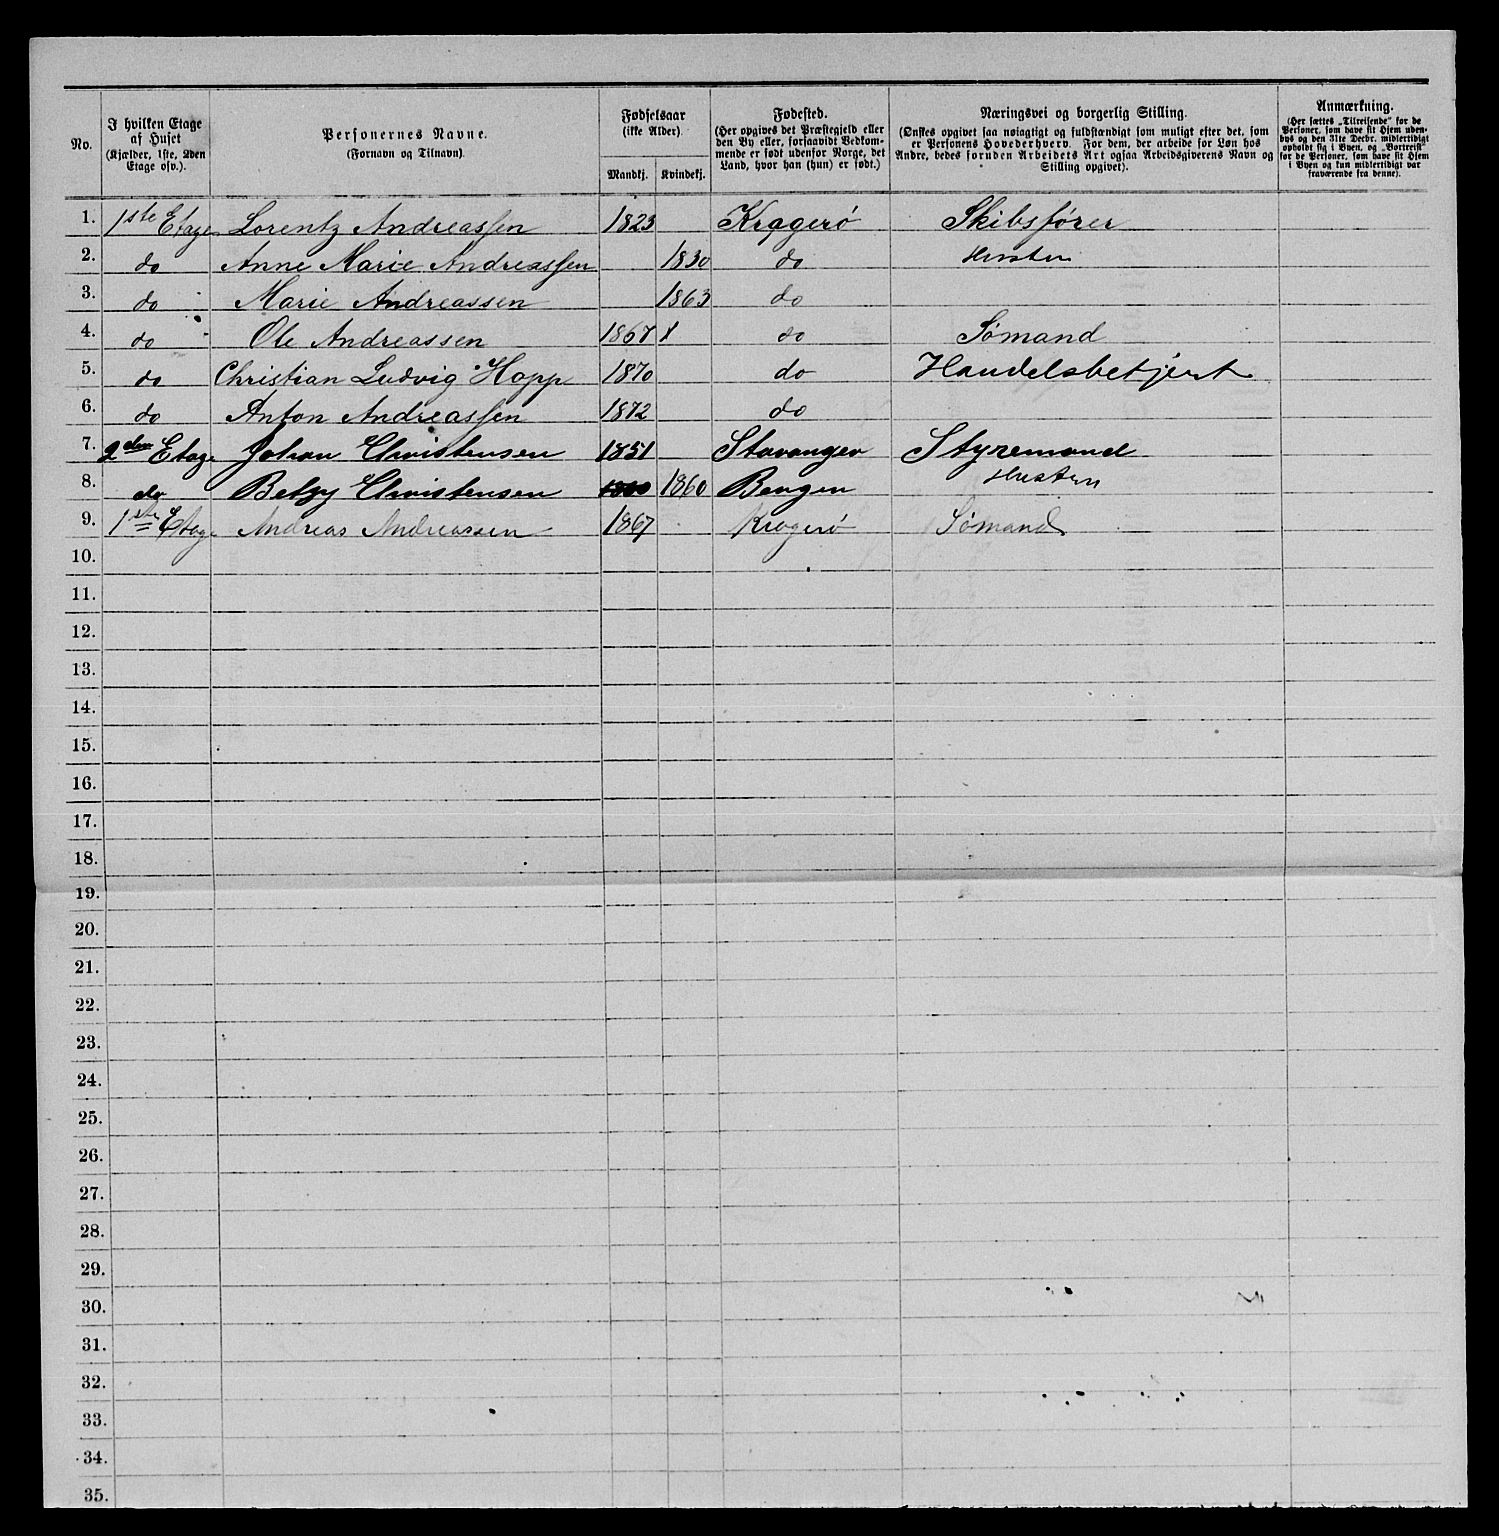 No. | I hvilken Etage af Huset (Kjælder, 1ste, 2den Etage osv.). | Personernes Navne. (Fornavn og Tilnavn). | Fødselsaar (ikke Alder). Mandkj. | Kvindekj. | Fødested. (Her opgives det Præstegjeld eller den By eller, forsaavidt Vedkommende er født udenfor Norge, det Land, hvor han (hun) er født.) | Næringsvei og borgerlig Stilling. (Ønskes opgivet saa nøiagtigt og fuldstændigt som muligt efter det, som er Personens Hovederhverv. For dem, der arbeide for Løn hos Andre, bedes foruden Arbeidets Art ogsaa Arbeidsgiverens Navn og Stilling opgivet). | Anmærkning. (Her sættes „Tilreisende" for de Personer, som have sit Hjem udenbys og den 31te Decbr. midlertidigt opholdt sig i Byen, og „Bortreist" for de Personer, som have sit Hjem i Byen og kun midlertidigt var fraværende fra denne).
1. 1ste Etage Lorentz Andreassen 1823 Kragerø Skibsfører
2. do Anne Marie Andreassen 1830 do Hustru
3. do Marie Andreassen 1863 do
4. do Ole Andreassen 1867 x do Sømand
5. do Christian Ludvig Hopp 1870 do Handelsbetjent
6. do Anton Andreassen 1872 do
7. 2den Etage Johan Christensen 1851 Stavanger Styremand
8. do Betzy Christensen 1860 1860 Bergen Hustru
9. 1ste Etage Andreas Andreassen 1867 Kragerø Sømand
10.
11.
12.
13.
14.
15.
16.
17.
18.
19.
20.
21.
22.
23.
24.
25.
26.
27.
28.
29.
30.
31.
32.
33.
34.
35.